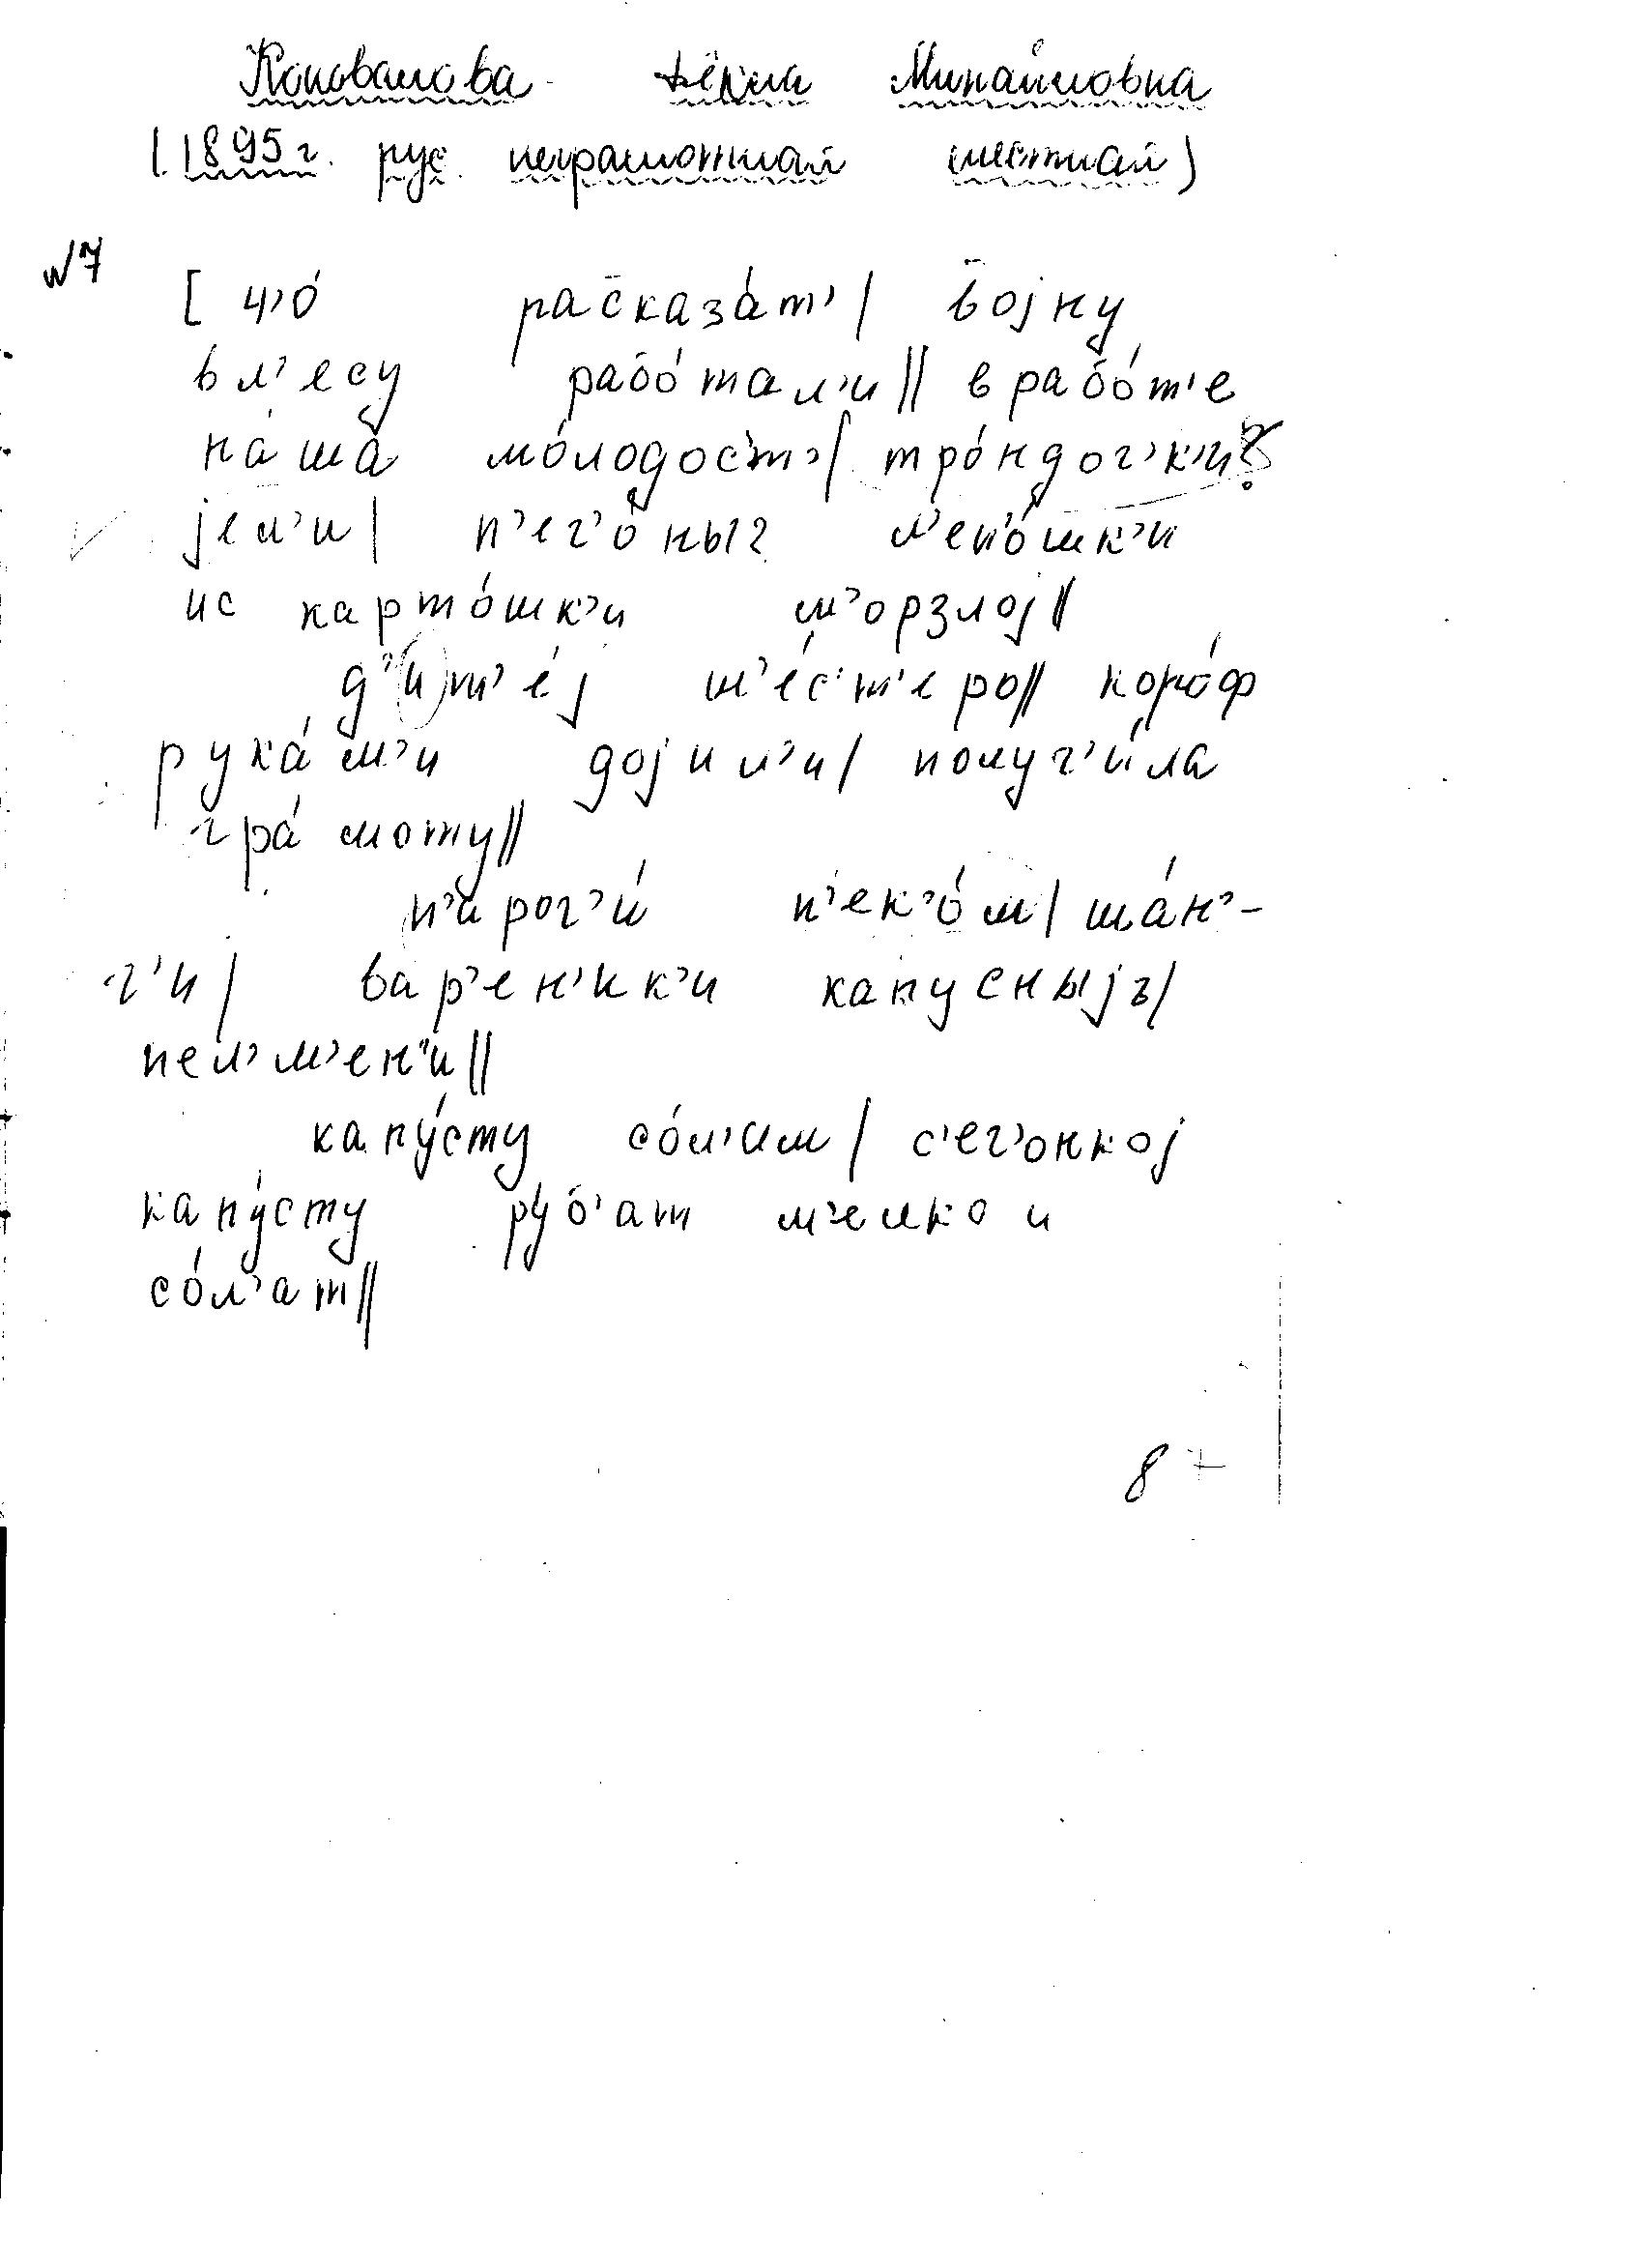 Коновалова Фёкла Михайловна
(1895г. рус. неграмотная местная)
№7
[ ч’о́ расказа́т’/ војну
в л’есу рабо́тал’и// в рабо́т’е
на́ша мо́лодост’/ тро́ндоч’к’и?
јел’и/ п’еч’о́ныг л’епо́шк’и
ис карто́шк’и м’орзлој//
д’(и)т’е́ј ш’е́ст’еро// коро́ф
рука́м’и дојил’и/ получ’и́ла
гра́моту//
п’ирог’и́ п’ек’о́м/ ша́н’-
г’и/ вар’ен’ик’и капусныјъ/
пел’м’ен’и//
капу́сту со́л’им/ с’еч’онкој
капу́сту ру́б’ат м’елко и
со́л’ат//
87